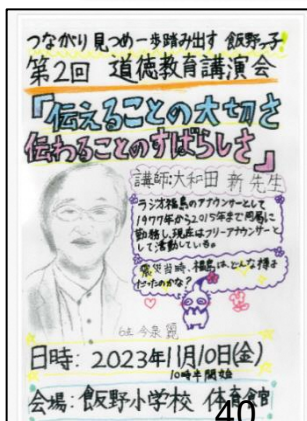 つながり見つめ一歩踏み出す 飯野っ子!
第2回 道徳教育講演会
「伝えることの大切さ
伝わることのすばらしさ」
講師:大和田 新 先生
ラジオ福島のアナウンサーとして
1977年から2015年まで同局に
勤務し、現在はフリーアナウンサーと
して活動している。
震災当時、福島は、どんな様子
だったのかな?
日時: 2023年11月10日(金)
10時半開始
会場:飯野小学校 体育館
40